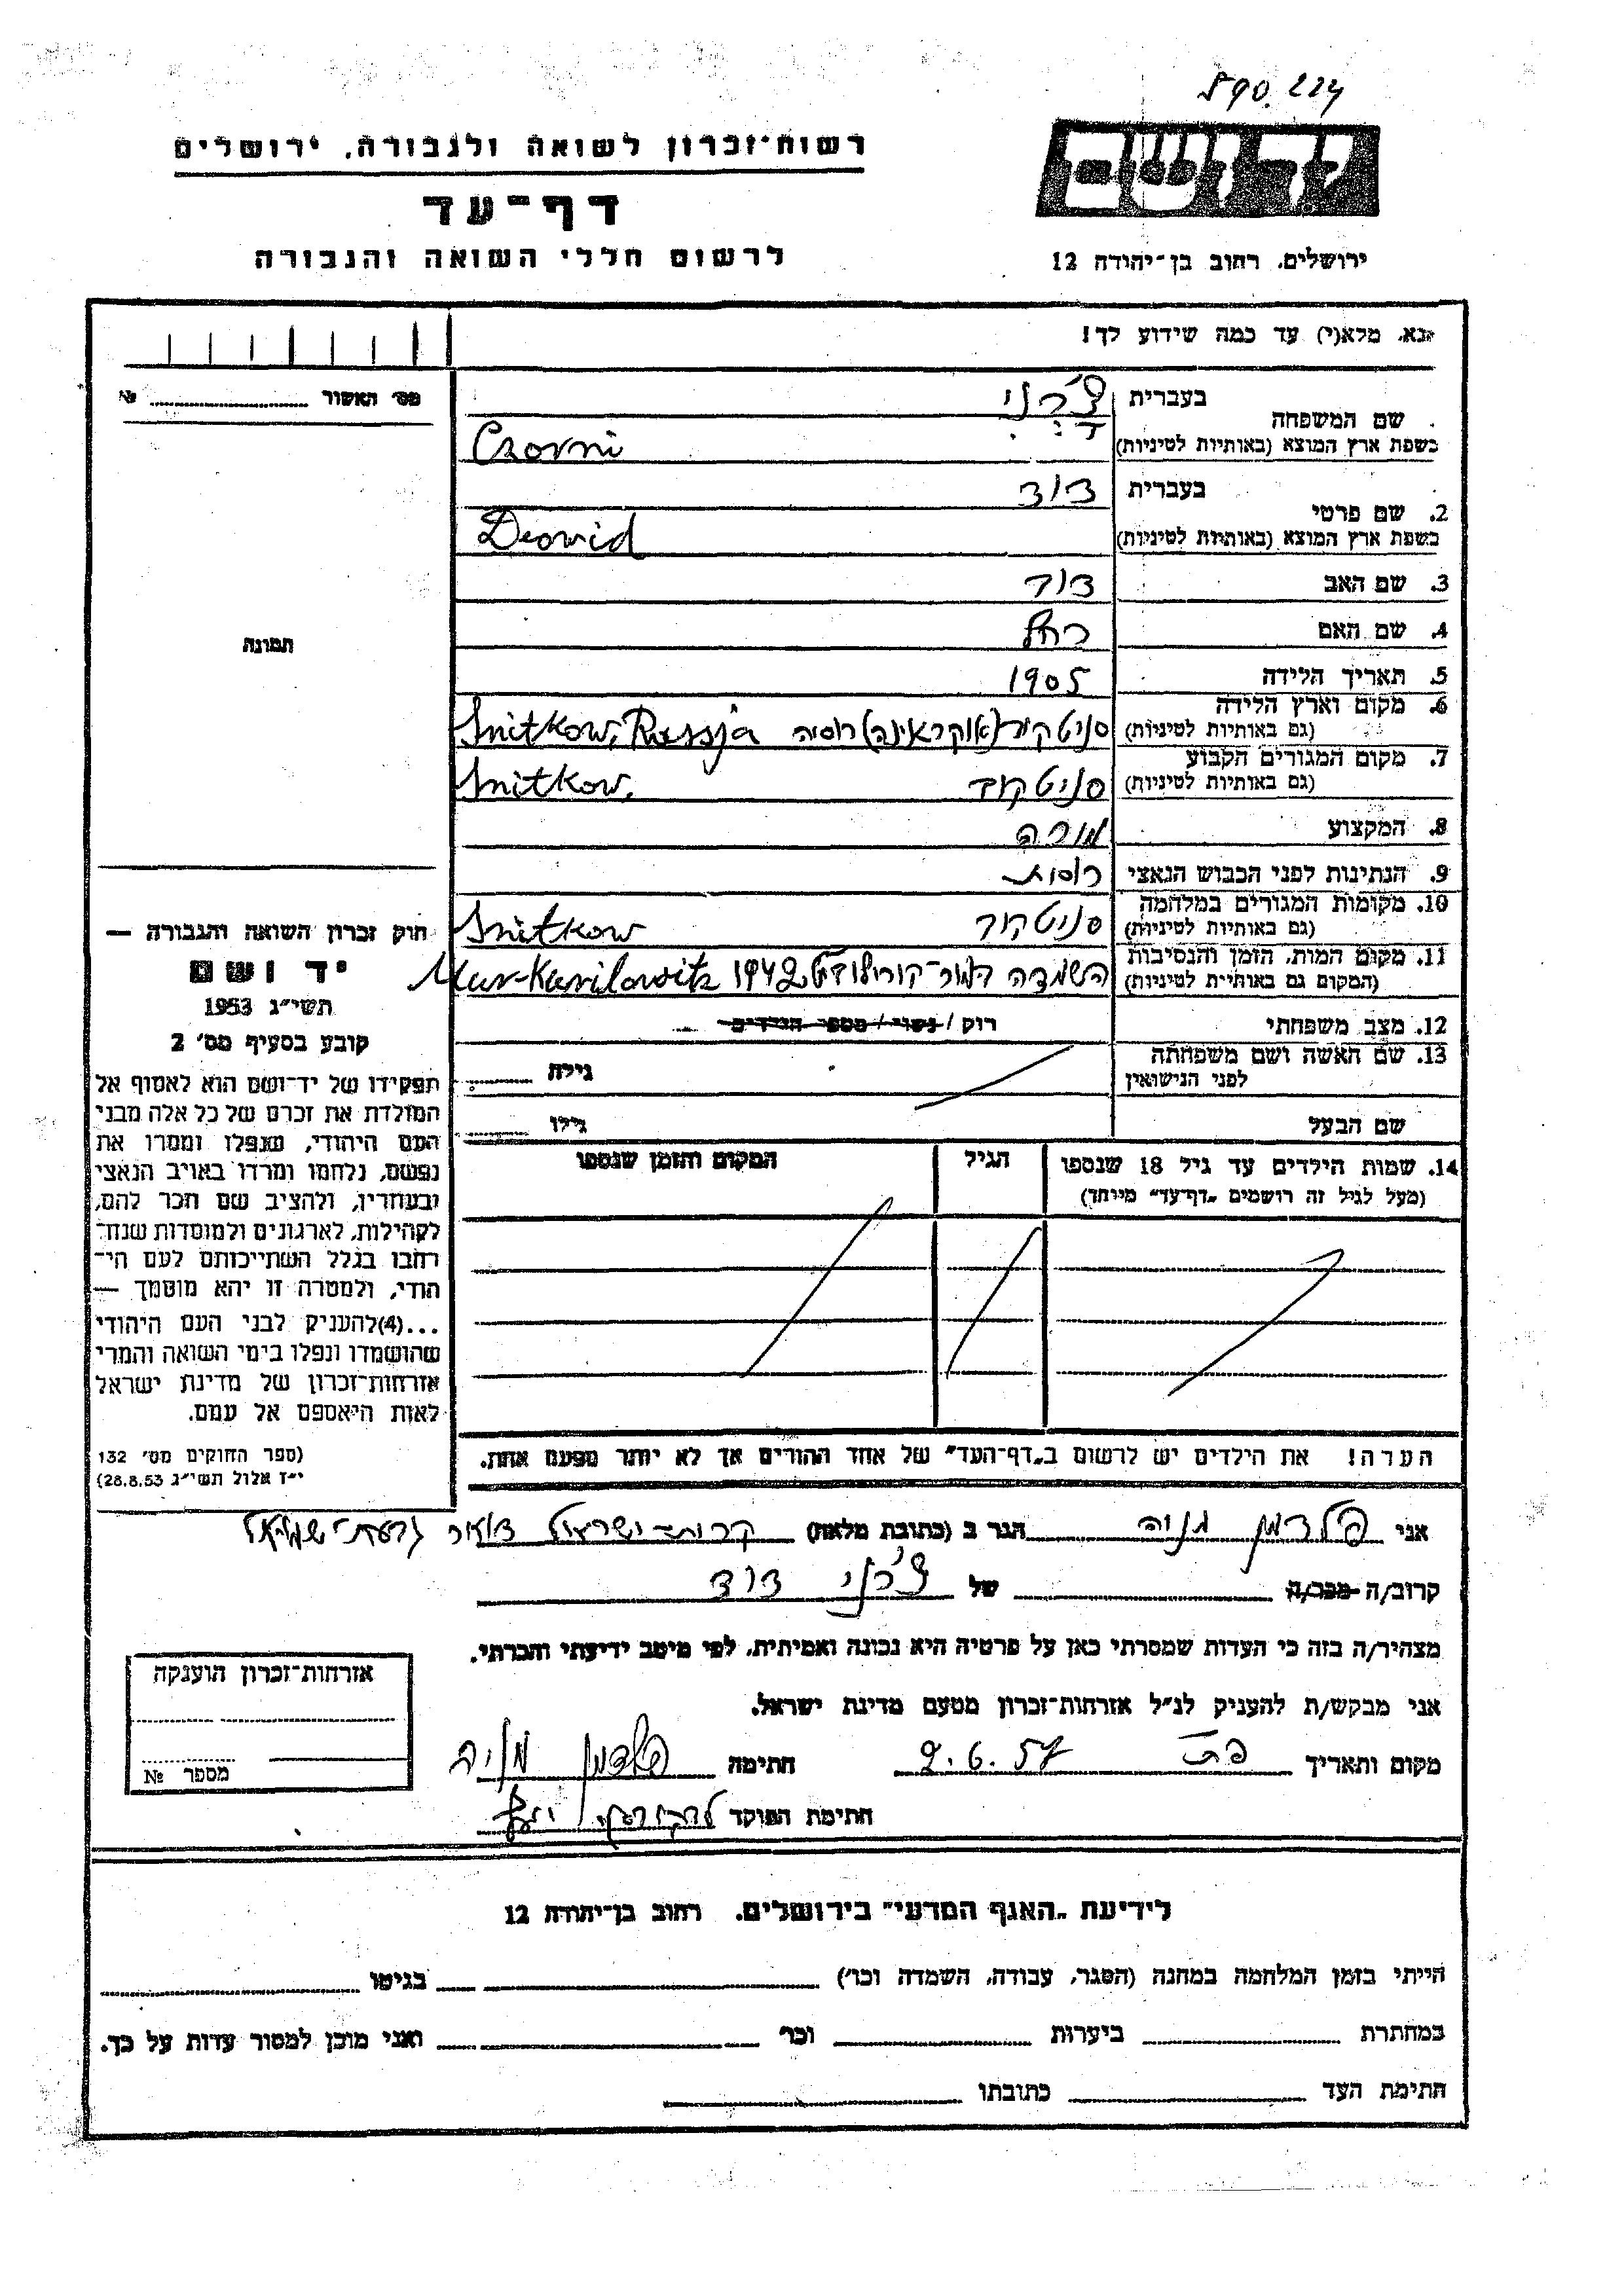 890.224
יד ושם
רשות־זכרון לשואה ולגבורה, ירושלים
דף־עד
לרשום חללי השואה והגבורה
ירושלים, רחוב בן־יהודה 12
נא, מלא(י) עד כמה שידוע לך!
מס׳ האשור № 
שם המשפחה
בעברית צ׳רני
בשפת ארץ המוצא (באותיות לטיניות) Czorni
2. שם פרטי
בעברית דוד
בשפת ארץ המוצא (באותיות לטיניות) Dawid
3. שם האב דוד
4. שם האם רחל
5. תאריך הלידה 1905
6. מקום וארץ הלידה (גם באותיות לטיניות) סניטקוב (אוקראינה) רוסיה Snitkow, Russja
7. מקום המגורים הקבוע (גם באותיות לטיניות) סניטקוב Snitkow,
8. המקצוע מורה
9. הנתינות לפני הכבוש הנאצי רוסית
10. מקומות המגורים במלחמה (גם באותיות לטיניות) סניטקוב Snitkow
11. מקום המות, הזמן והנסיבות (המקום גם באותיות לטיניות) השמדה 1942 Mur-Kurilowitz
12. מצב משפחתי רווק / נשוי / מספר הילדים
13. שם האשה ושם משפחתה לפני הנישואין גילה
שם הבעל גילו
14. שמות הילדים עד גיל 18 שנספו
(מעל לגיל זה רושמים „דף־עד” מיוחד)
הגיל
המקום והזמן שנספו
הערה! את הילדים יש לרשום ב„דף־העד” של אחד ההורים אך לא יותר מפעם אחת.
תמונה
חוק זכרון השואה והגבורה —
יד ושם
תשי״ג 1953
קובע בסעיף מס׳ 2
תפקידו של יד־ושם הוא לאסוף אל
המולדת את זכרם של כל אלה מבני
העם היהודי, שנפלו ומסרו את
נפשם, נלחמו ומרדו באויב הנאצי
ובעוזריו, ולהציב שם וזכר להם,
לקהילות, לארגונים ולמוסדות שנח־
רבו בגלל השתייכותם לעם הי־
הודי, ולמטרה זו יהא מוסמך —
...(4) להעניק לבני העם היהודי
שהושמדו ונפלו בימי השואה והמרי
אזרחות־זכרון של מדינת ישראל
לאות היאספם אל עמם.
(ספר החוקים מס׳ 132
י״ז אלול תשי״ג 28.8.53)
אני פלדמן מניה הגר ב (כתובת מלאה) קרית־ישראל דואר גבעת־שמואל
קרוב/ה מכר/ה של צ׳רני דוד
מצהיר/ה בזה כי העדות שמסרתי כאן על פרטיה היא נכונה ואמיתית, לפי מיטב ידיעתי והכרתי.
אני מבקש/ת להעניק לנ״ל אזרחות־זכרון מטעם מדינת ישראל.
מקום ותאריך פת 2.6.57 חתימה פלדמן מניה
חתימת הפוקד
אזרחות־זכרון הוענקה
מספר №
לידיעת „האגף המדעי” בירושלים, רחוב בן־יהודה 12
הייתי בזמן המלחמה במחנה (הסגר, עבודה, השמדה וכו׳) בגיטו
במחתרת ביערות וכו׳ ואני מוכן למסור עדות על כך.
חתימת העד כתובתו